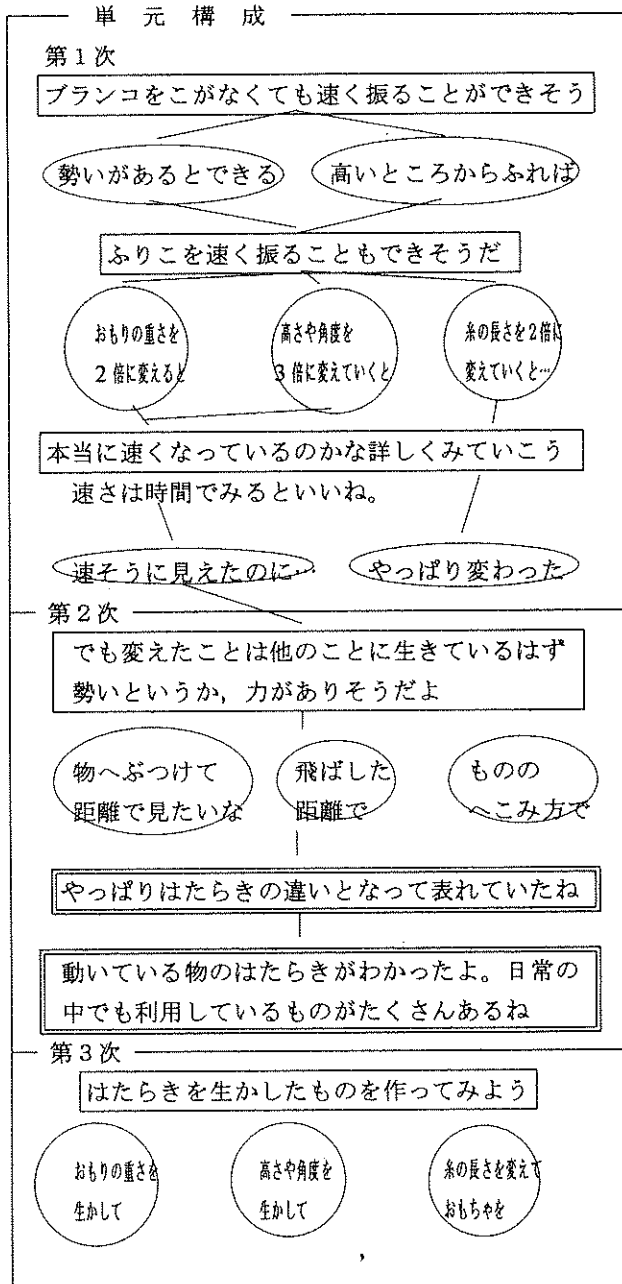 単元構成
第1次
ブランコをこがなくても速く振ることができそう
勢いがあるとできる
高いところからふれば
ふりこを速く振ることもできそうだ
おもりの重さを
2倍に変えると
高さや角度を
3倍に変えていくと
糸の長さを2倍に
変えていくと…
本当に速くなっているのかな詳しくみていこう
速さは時間でみるといいね。
速そうに見えたのに…
やっぱり変わった
第2次
でも変えたことは他のことに生きているはず
勢いというか,力がありそうだよ
物へぶつけて
距離で見たいな
飛ばした
距離で
ものの
へこみ方で
やっぱりはたらきの違いとなって表れていたね
動いている物のはたらきがわかったよ。日常の
中でも利用しているものがたくさんあるね
第3次
はたらきを生かしたものを作ってみよう
おもりの重さを
生かして
高さや角度を
生かして
糸の長さを変えて
おもちゃを